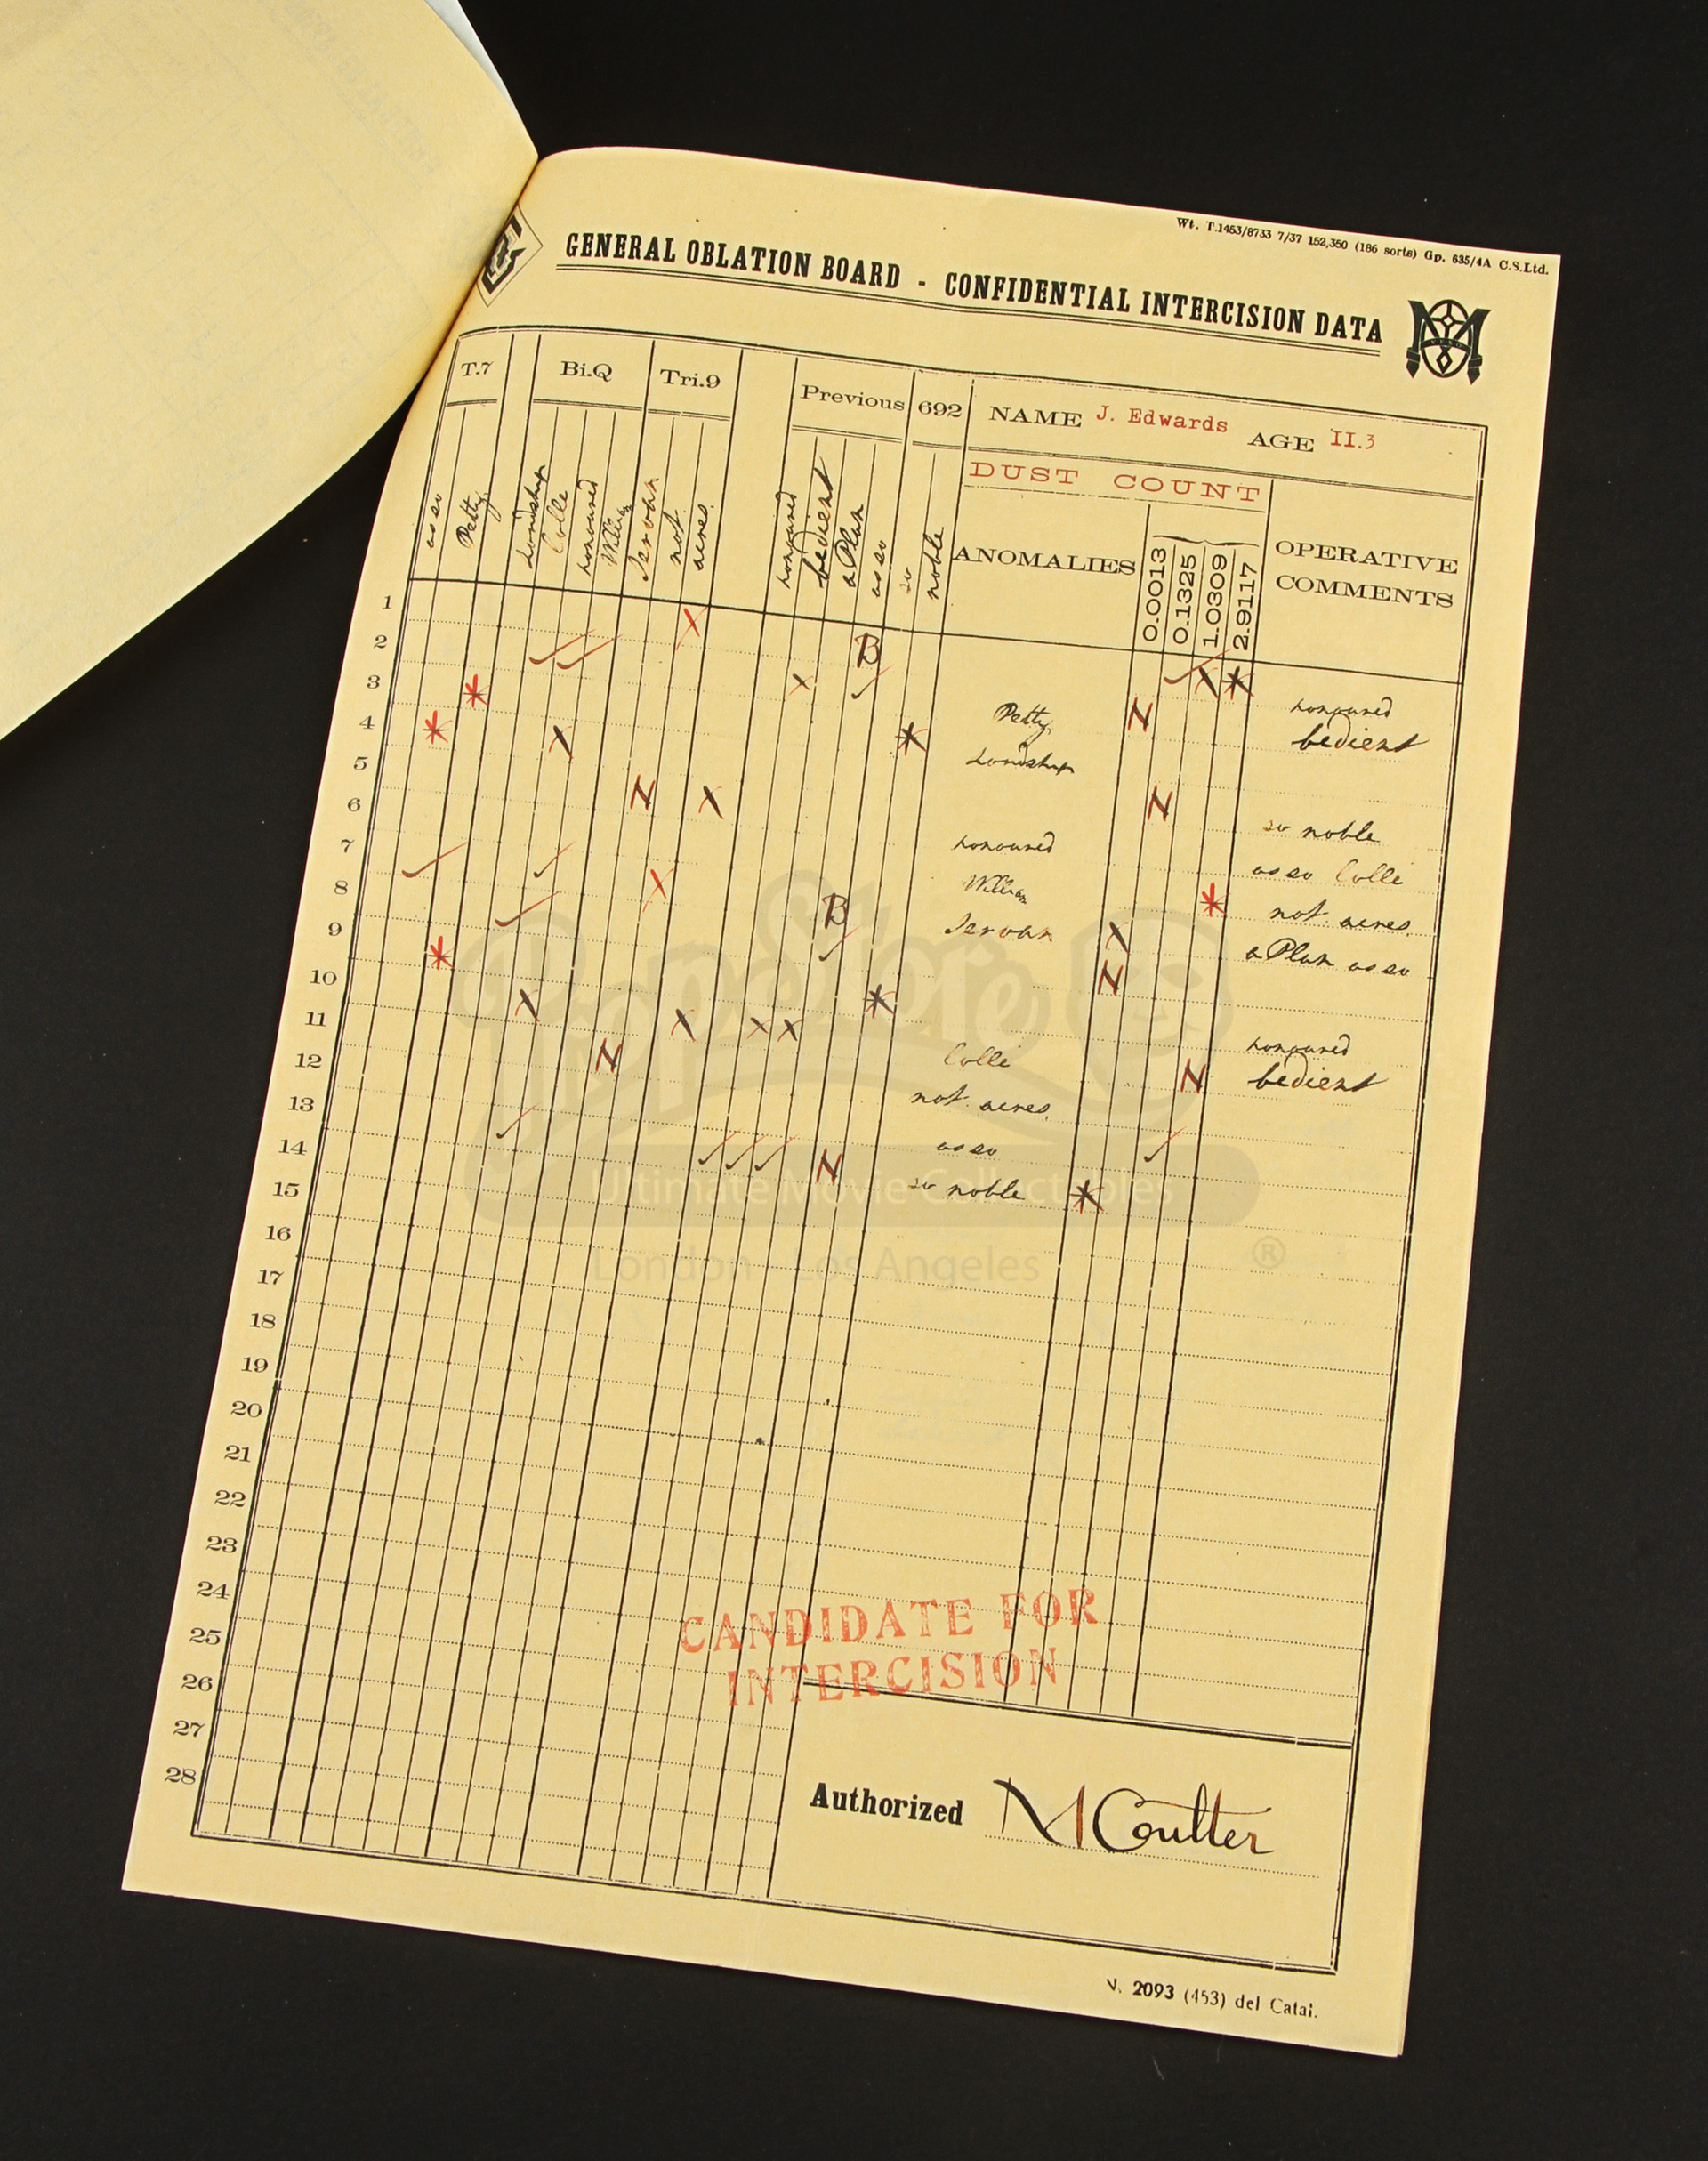 Wt. T.1453/8733 7/37 152,350 (186 sorts) Gp. 635/4A C.S.Ltd.
GENERAL OBLATION BOARD - CONFIDENTIAL INTERCISION DATA
T.7 Bi.Q Tri.9 Previous 692 NAME J. Edwards AGE II.3
DUST COUNT
as so Petty Lordship Colle honoured William Servan not acres honoured bedient a Plan as so so noble
ANOMALIES 0.00013 0.1325 1.0309 2.9117 OPERATIVE COMMENTS
1 X
2 B
3 X X
4 X Petty N honoured
bedient
5 Lordship
6 N X N
so noble
7 honoured as so Colle
8 X William not acres
9 B Servan X a Plan as so
10 N
11 X X X X
12 N Colle N honoured
bedient
13 not acres
14 N as so
15 so noble
16
17
18
19
20
21
22
23
24
25
26
27
28
CANDIDATE FOR
INTERCISION
Authorized M Coulter
V. 2093 (453) del Catai.
PropStore
Ultimate Movie Collectables
London - Los Angeles
®